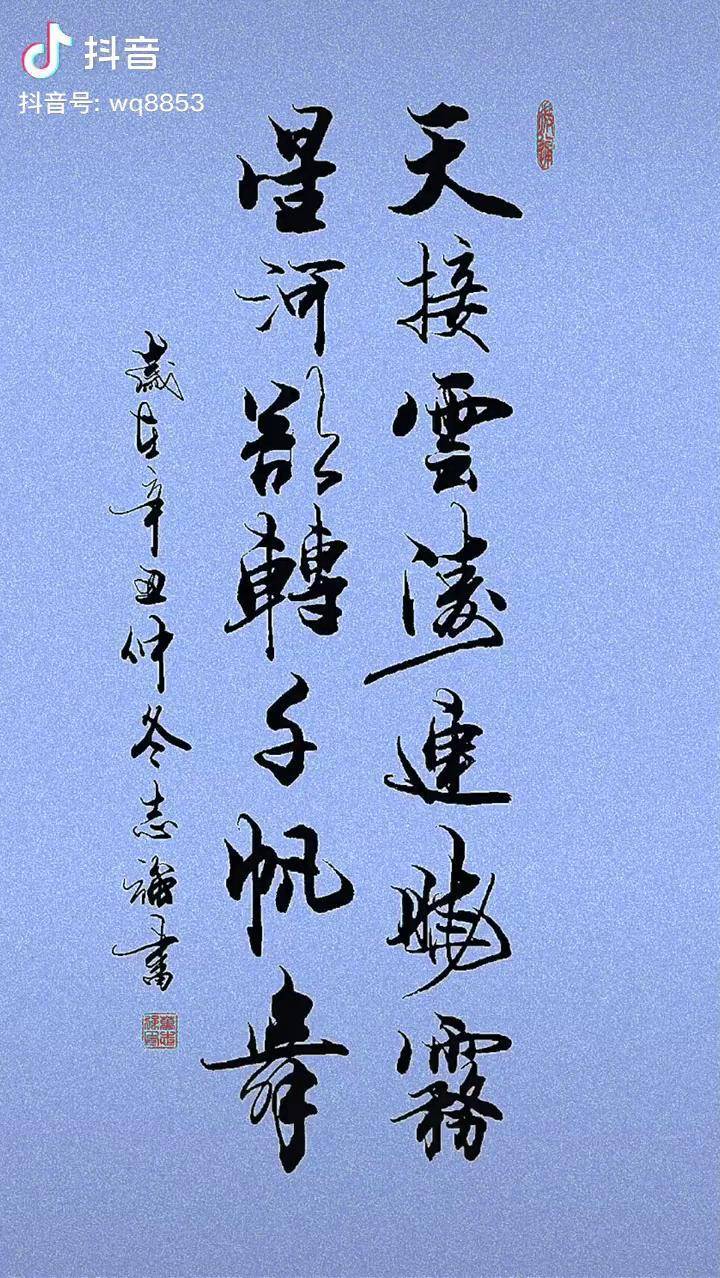 抖音
抖音号: wq8853
天接雲濤連曉霧
星河欲轉千帆舞
歲在辛丑仲冬志書